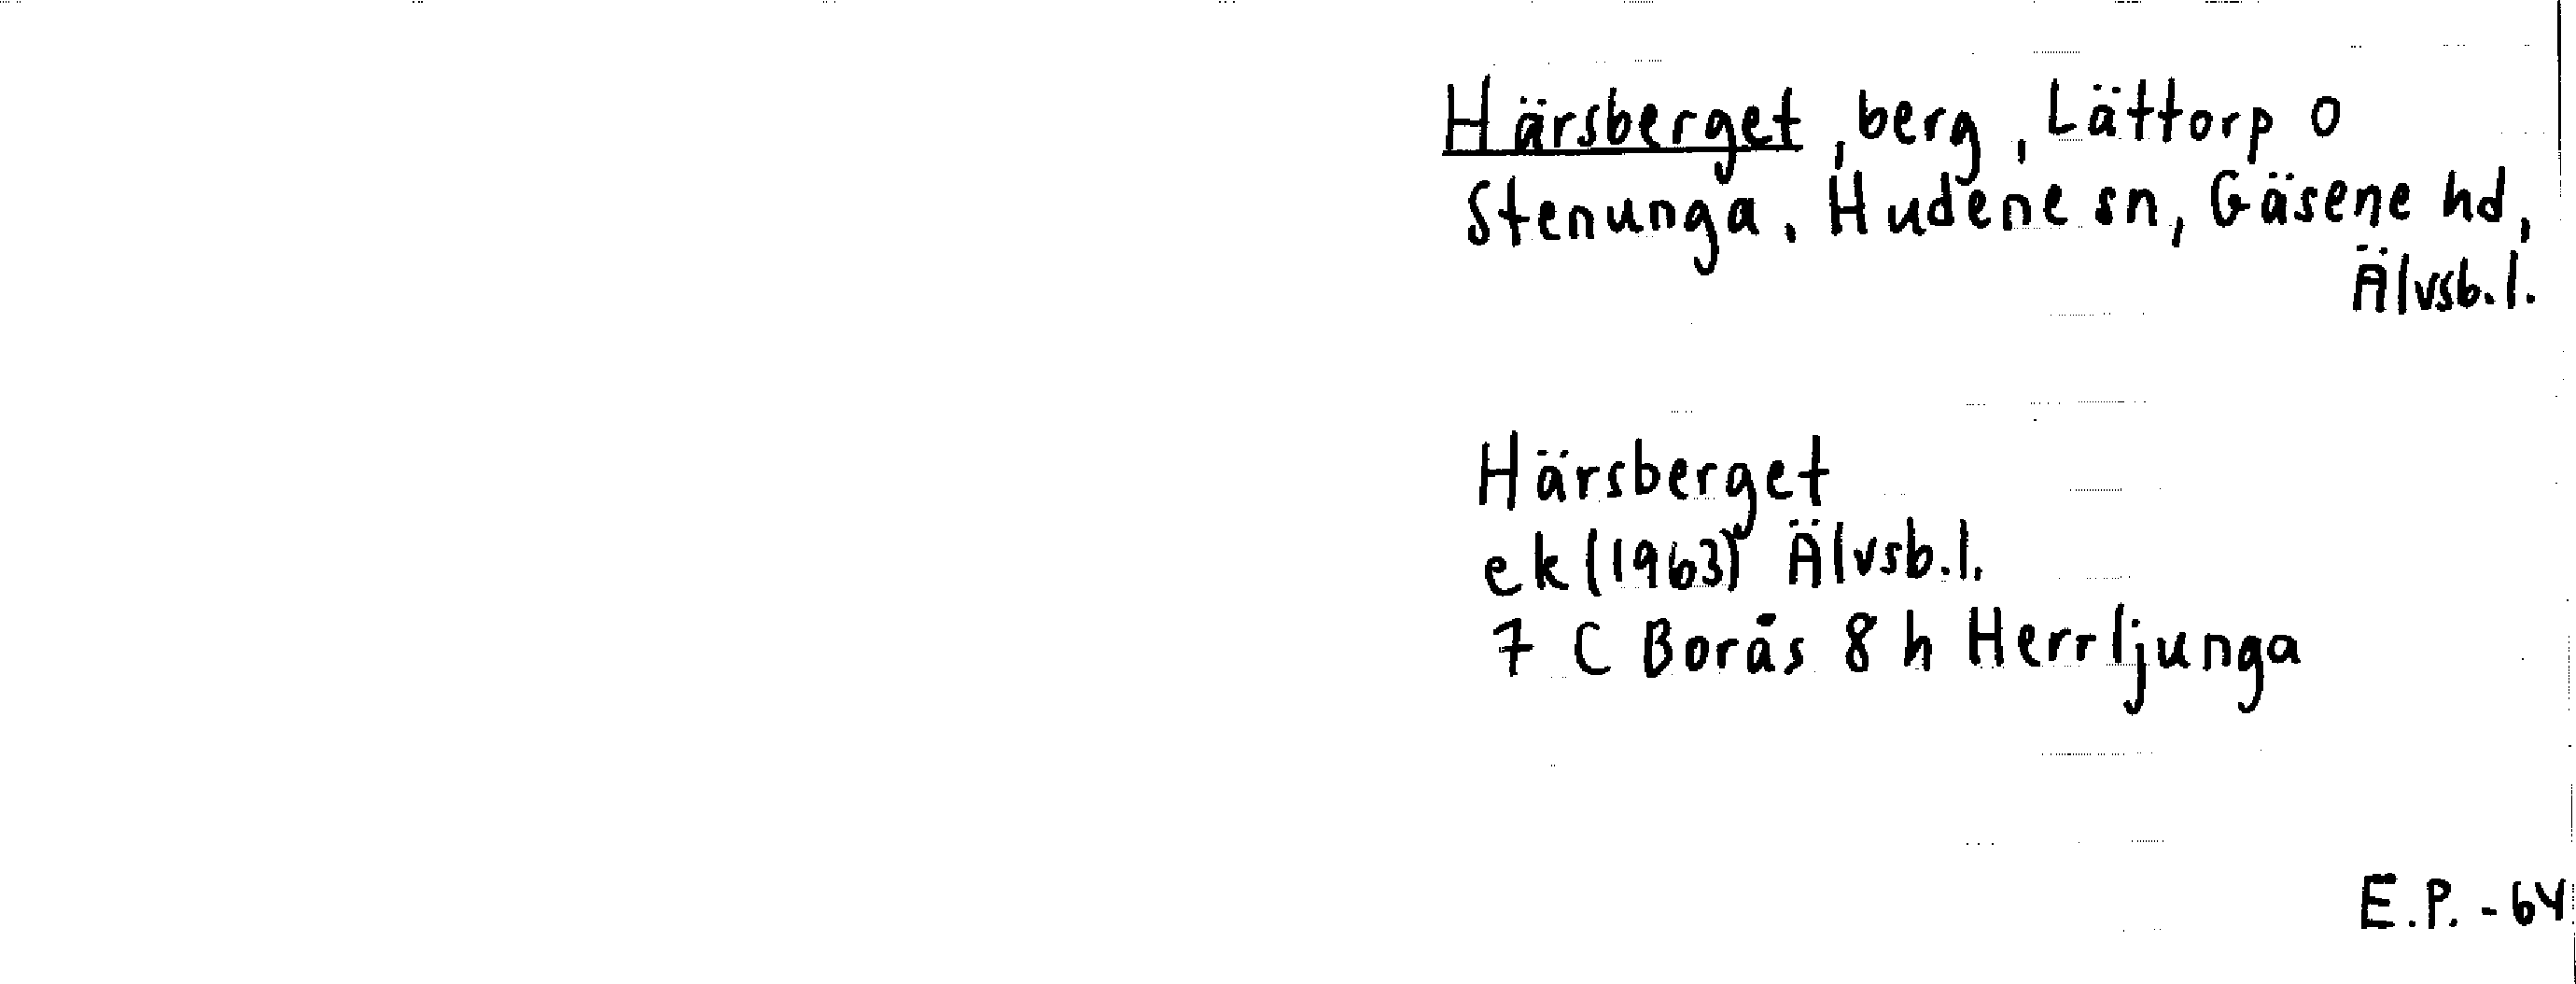 Härsberget, berg, Lättorp o
Stenunga, Hudene sn, Gäsene hd,
Älvsb.l.
Härsberget
ek (1963) Älvsb.l.
7 C Borås 8 h Herrljunga
E.P. -64